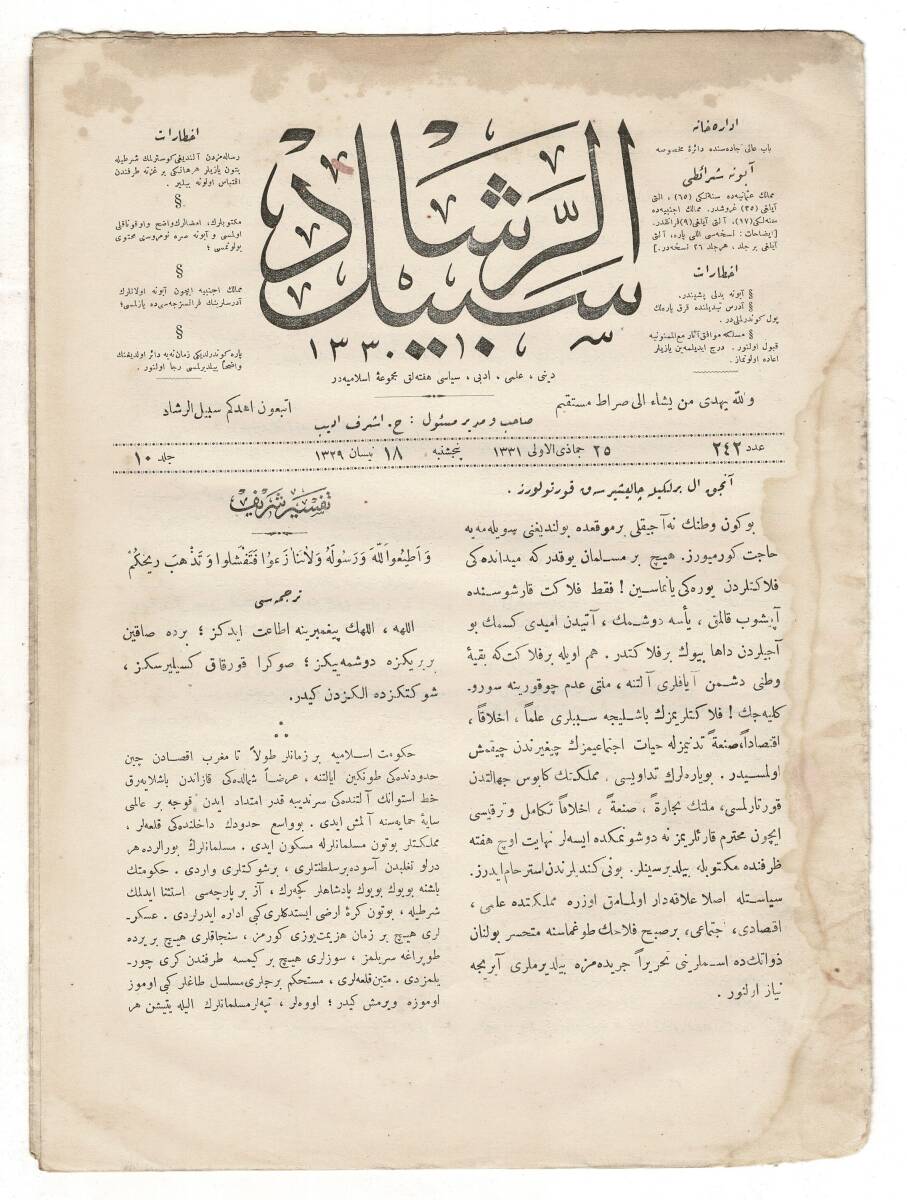 اداره خانه
باب عالی جاده‌سنده دائرهٔ مخصوصه
آبونه شرائطی
ممالك عثمانیه‌ده سنه‌لكی (٦٥)، التی
آیلغی (٣٥) غروشدر. ممالك اجنبیه‌ده
سنه‌لكی (١٧)، آلتی آیلغی (٩) فرانقدر.
[ایضاحات: نسخه‌سی اللی پاره، آلتی
آیلغی بر جلد، هر جلد ٢٦ نسخه‌در.]
اخطارات
§ آبونه بدلی پشیندر.
§ آدرس تبدیلنده قرق پاره‌لك
پول كوندرلملی‌در.
§ مسلكه موافق آثار مع‌الممنونیه
قبول اولنور. درج ایدیلمه‌ین یازیلر
اعاده اولونماز.
سبیل الرشاد
١٣٣٠
اخطارات
رساله‌مزدن آلندیغی كوسترلمك شرطیله
بتون یازیلر هر هانكی بر غزته طرفندن
اقتباس اولونه بیلیر.
§
مكتوبلرك، امضالرك واضح و اوقوناقلی
اولمسی و آبونه صره نومروسی محتوی
بولونمسی؛
§
ممالك اجنبیه ایچون آبونه اولانلرك
آدرسلرینك فرانسزجه‌سی ده یازلمسی؛
§
پاره كوندرلدیكی زمان نه‌یه دائر اولدیغنك
واضحاً بیلدیرلمسی رجا اولنور.
دینی، علمی، ادبی، سیاسی هفته‌لق مجموعهٔ اسلامیه‌در
والله یهدی من یشاء الی صراط مستقیم
اتبعون اهدكم سبیل الرشاد
صاحب و مدیر مسئول: ح. اشرف ادیب
عدد ٢٤٢
٢٥ جماذی‌الاولی ١٣٣١
پنجشنبه
١٨ نیسان ١٣٢٩
جلد ١٠
آنجق ال برلكیله چالیشیرسه‌ق قورتولورز.
بوكون وطنك نه آجیقلی بر موقعده بولندیغنی سویله‌مه‌یه
حاجت كورمیورز. هیچ بر مسلمان یوقدر كه میدانده‌كی
فلاكتلردن یوره‌كی یانماسین! فقط فلاكت قارشوسنده
آپیشوب قالمق، یأسه دوشمك، آتیدن امیدی كسمك بو
آجیلردن داها بیوك بر فلاكتدر. هم اویله بر فلاكت كه بقیهٔ
وطنی دشمن آیاقلری آلتنه، ملتی عدم چوقورینه سورو-
كلیه‌جك! فلاكتلریمزك باشلیجه سببلری علماً، اخلاقاً،
اقتصاداً، صنعةً تدنیمزله حیات اجتماعیمزك چیغیرندن چیقمش
اولمسیدر. بو یاره‌لرك تداویسی، مملكتك كابوس جهالتدن
قورتارلمسی، ملتك تجارةً، صنعةً، اخلاقاً تكامل و ترقیسی
ایچون محترم قارئلریمز نه دوشونمكده ایسه‌لر نهایت اوچ هفته
ظرفنده مكتوبله بیلدیرسینلر. بونی كندیلرندن استرحام ایدرز.
سیاستله اصلا علاقه‌دار اولمامق اوزره مملكتده علمی،
اقتصادی، اجتماعی، بر صبح فلاحك طوغماسنه متحسر بولنان
ذواتك ده اسملرینی تحریراً جریده‌مزه بیلدیرملری آیریجه
نیاز اولنور.
تفسیر شریف
وَاَطِیعُوا اللّٰهَ وَرَسُولَهُ وَلَاتَنَازَعُوا فَتَفْشَلُوا وَتَذْهَبَ رِیحُكُمْ
ترجمه‌سی
اللهه، اللهك پیغمبرینه اطاعت ایدكز؛ برده صاقین
بربریكزه دوشمه‌ییكز؛ صوكرا قورقاق كسیلیرسكز،
شوكتكزده الكزدن كیدر.
حكومت اسلامیه بر زمانلر طولاً تا مغرب اقصادن چین
حدودنده‌كی طونكین ایالتنه، عرضاً شمالده‌كی قازاندن باشلایه‌رق
خط استوانك آلتنده‌كی سرندیبه قدر امتداد ایدن قوجه بر عالمی
سایهٔ حمایه‌سنه آلمش ایدی. بو واسع حدودك داخلنده‌كی قلعه‌لر،
مملكتلر بوتون مسلمانلرله مسكون ایدی. مسلمانلرك بورالرده هر
درلو تغلبدن آسوده بر سلطنتلری، بر شوكتلری واردی. حكومتك
باشنه بویوك بویوك پادشاهلر كچه‌رك، آز بر پارچه‌سی استثنا ایدلمك
شرطیله، بوتون كرهٔ ارضی ایستدكلری كبی اداره ایدرلردی. عسكر-
لری هیچ بر زمان هزیمت یوزی كورمز، سنجاقلری هیچ بر یرده
طوپراغه سریلمز، سوزلری هیچ بر كیمسه طرفندن كری چور-
یلمزدی. متین قلعه‌لری، مستحكم برجلری مسلسل طاغلر كبی اوموز
اوموزه ویرمش كیدر؛ اووه‌لر، تپه‌لر مسلمانلرك الیله یتیشن هر